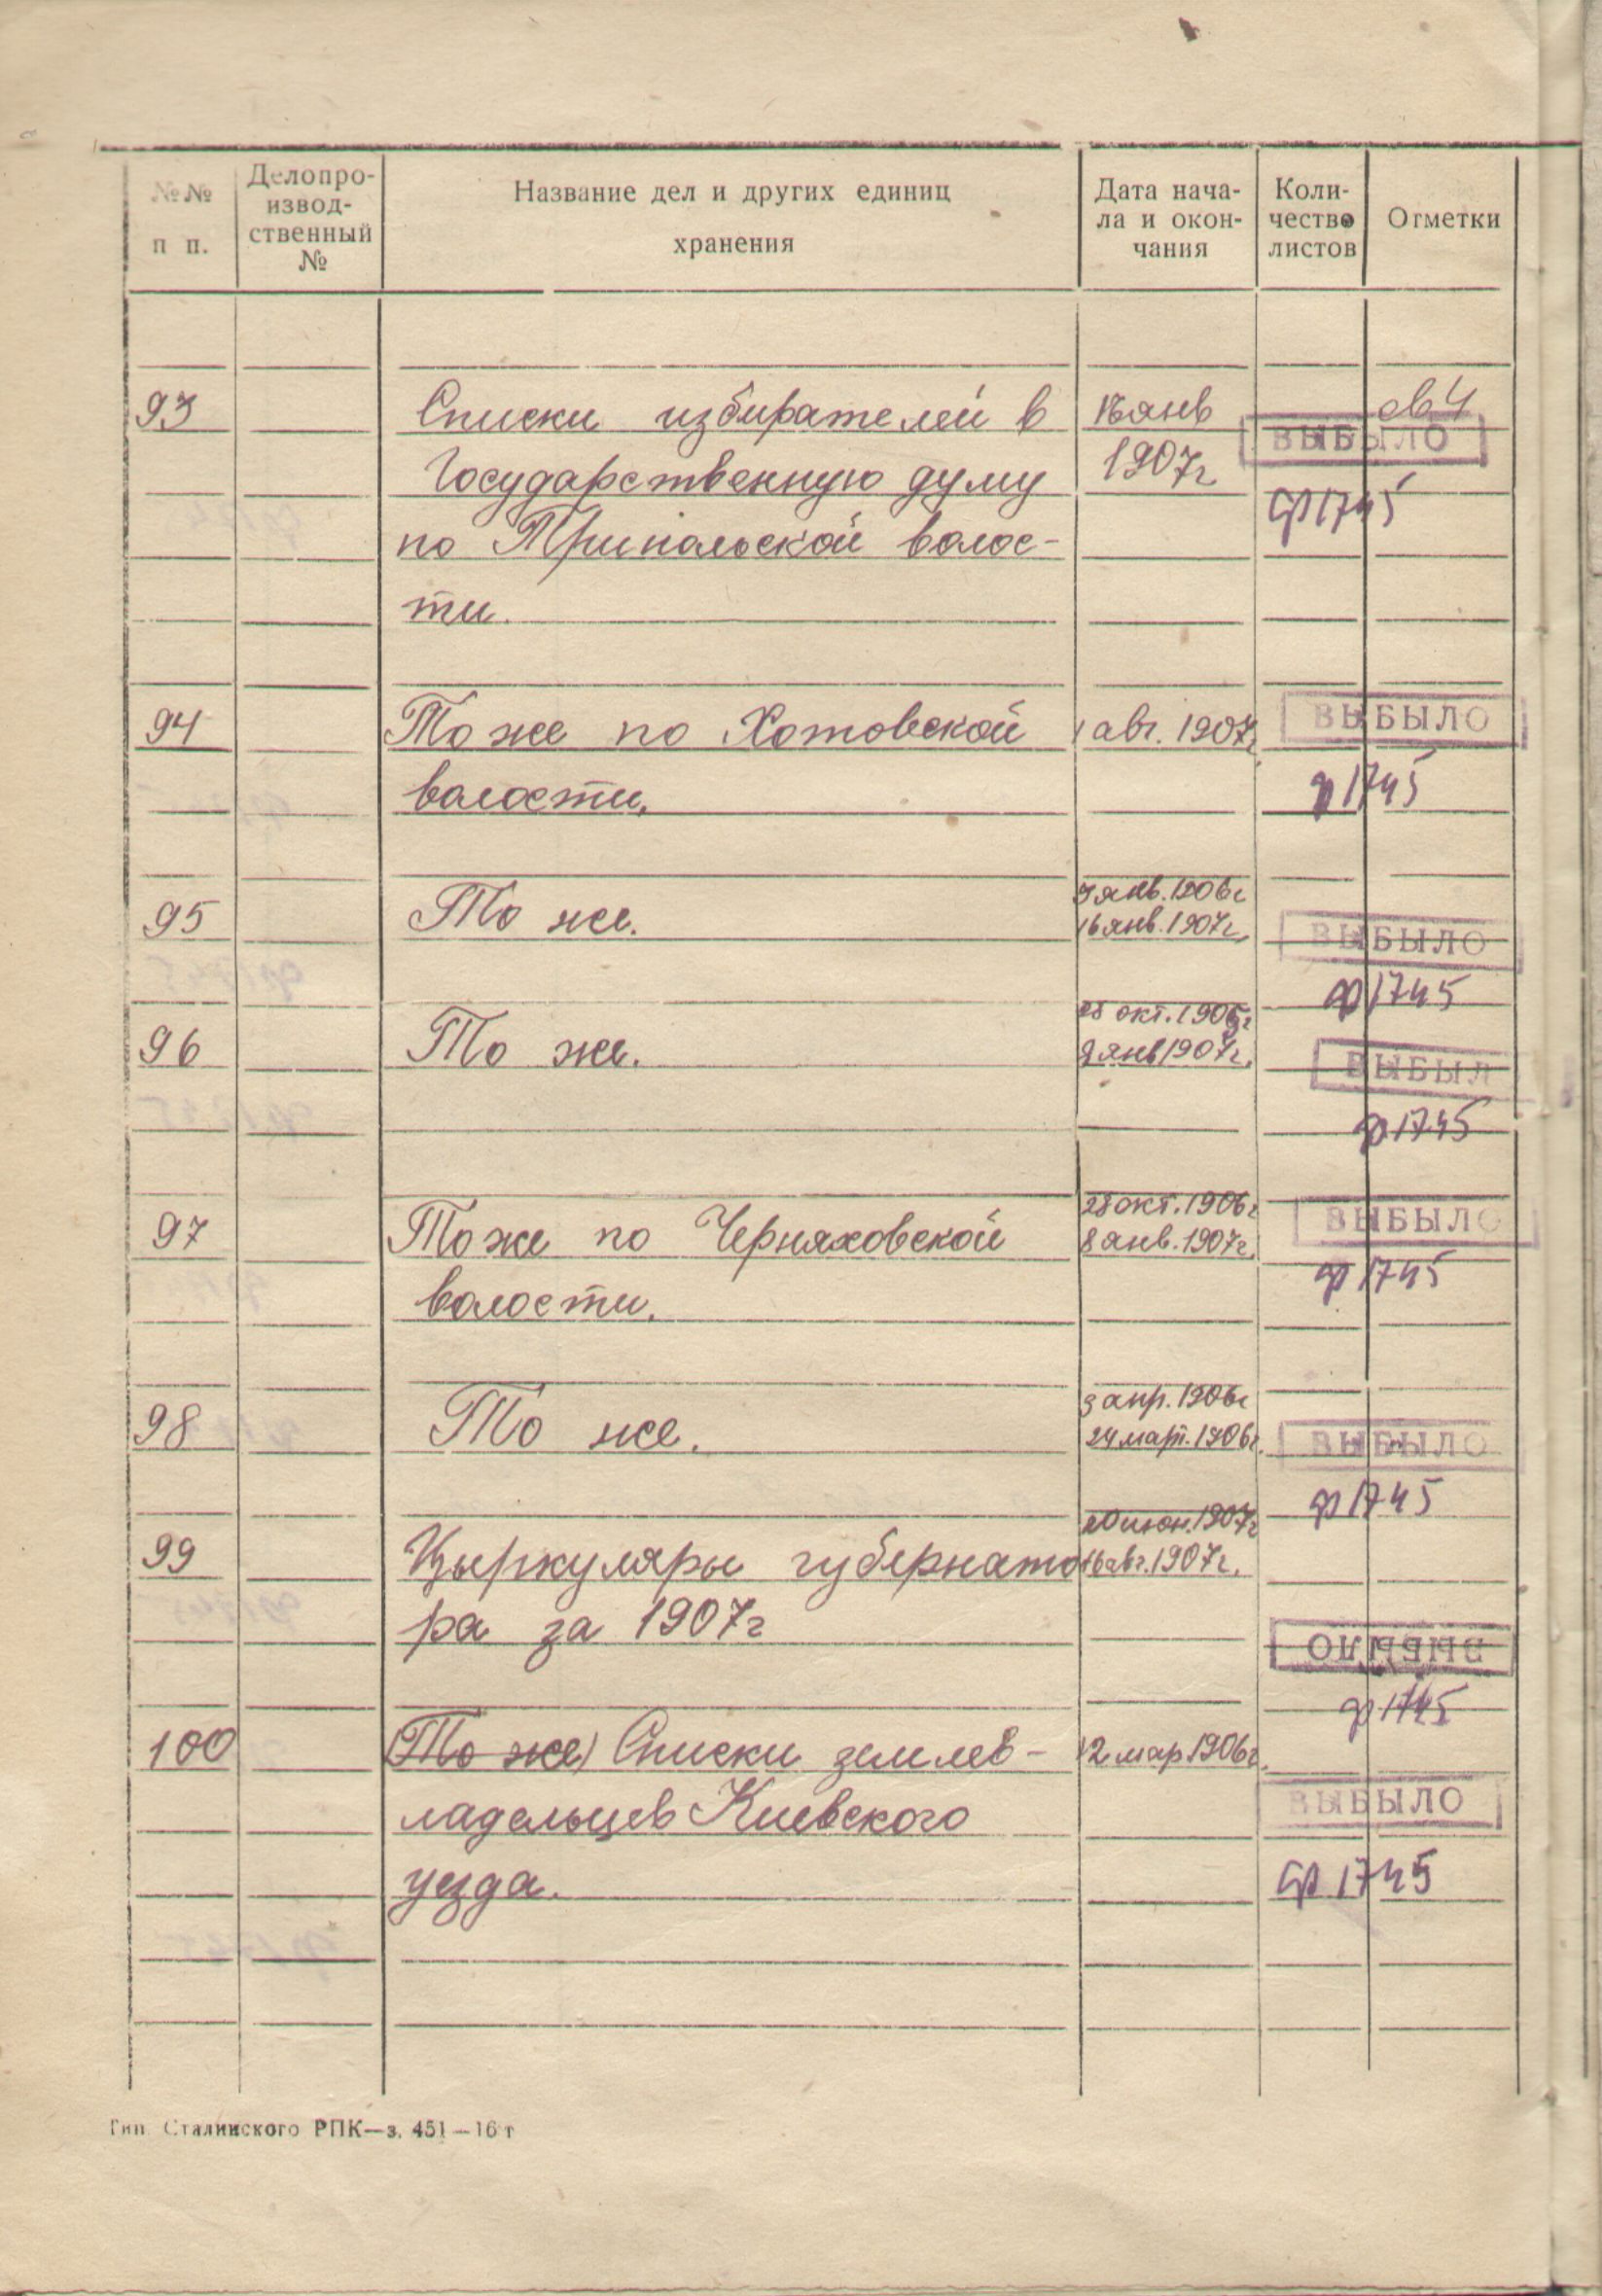 №№ п п.
Делопро-
извод-
ственный
№
Название дел и других единиц
хранения
Дата нача-
ла и окон-
чания
Коли-
чество
листов
Отметки
93 Списки избирателей в янв
Государственную думу 1907г
ВЫБЫЛО
ф1745
по Трипольской волос-
ти.
94 То же по Хотовской 1 авг. 1907г. ВЫБЫЛО
волости. ф1745
95 То же. 9 янв. 1906г
16 янв. 1907г. ВЫБЫЛО
ф1745
96 То же. 28 окт. 1906г
9 янв 1907г. ВЫБЫЛ
ф1745
97 То же по Черняховской 28 окт. 1906г
8 янв. 1907г. ВЫБЫЛО
волости. ф1745
98 То же. 3 апр. 1906г
24 март. 1906г. ВЫБЫЛО
ф1745
99 Цыркуляры губернато 20 июн. 1907г
16 авг. 1907г.
ра за 1907г ВЫБЫЛО
ф1745
100 (То же) Списки землев- 12 мар 1906г.
ладельцев Киевского ВЫБЫЛО
уезда. ф1745
Тип. Сталинского РПК—з. 451—16 т